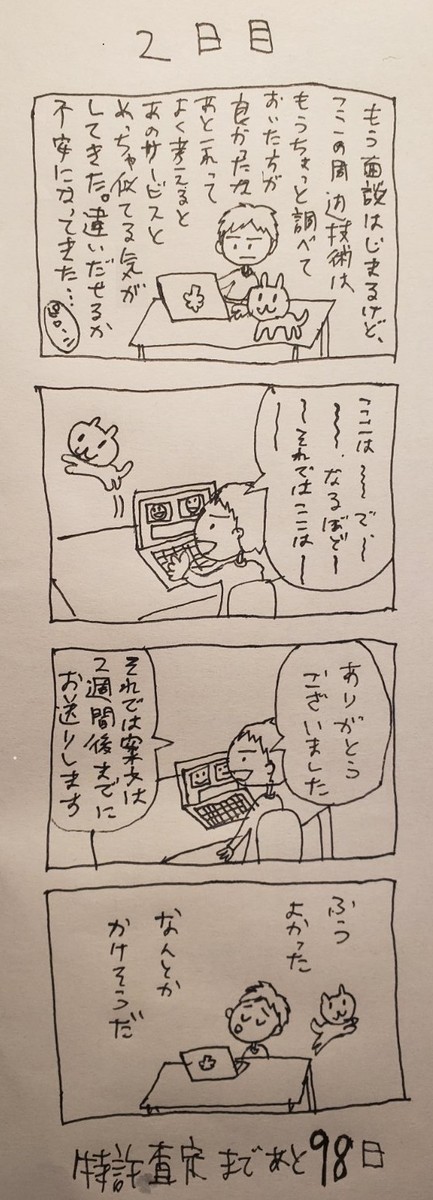 2日目
もう面談はじまるけど、
ここの周辺技術は
もうちょっと調べて
おいた方が
良かったかな
あとこれって
よく考えると
あのサービスと
めっちゃ似てる気が
してきた。違いだせるか
不安になってきた…
ここは〜〜で、〜
〜〜、なるほど〜
〜それではここは〜
〜
ありがとう
ございました
それでは案文は
2週間後までに
お送りします
ふう
よかった
なんとか
かけそうだ
特許査定まであと98日